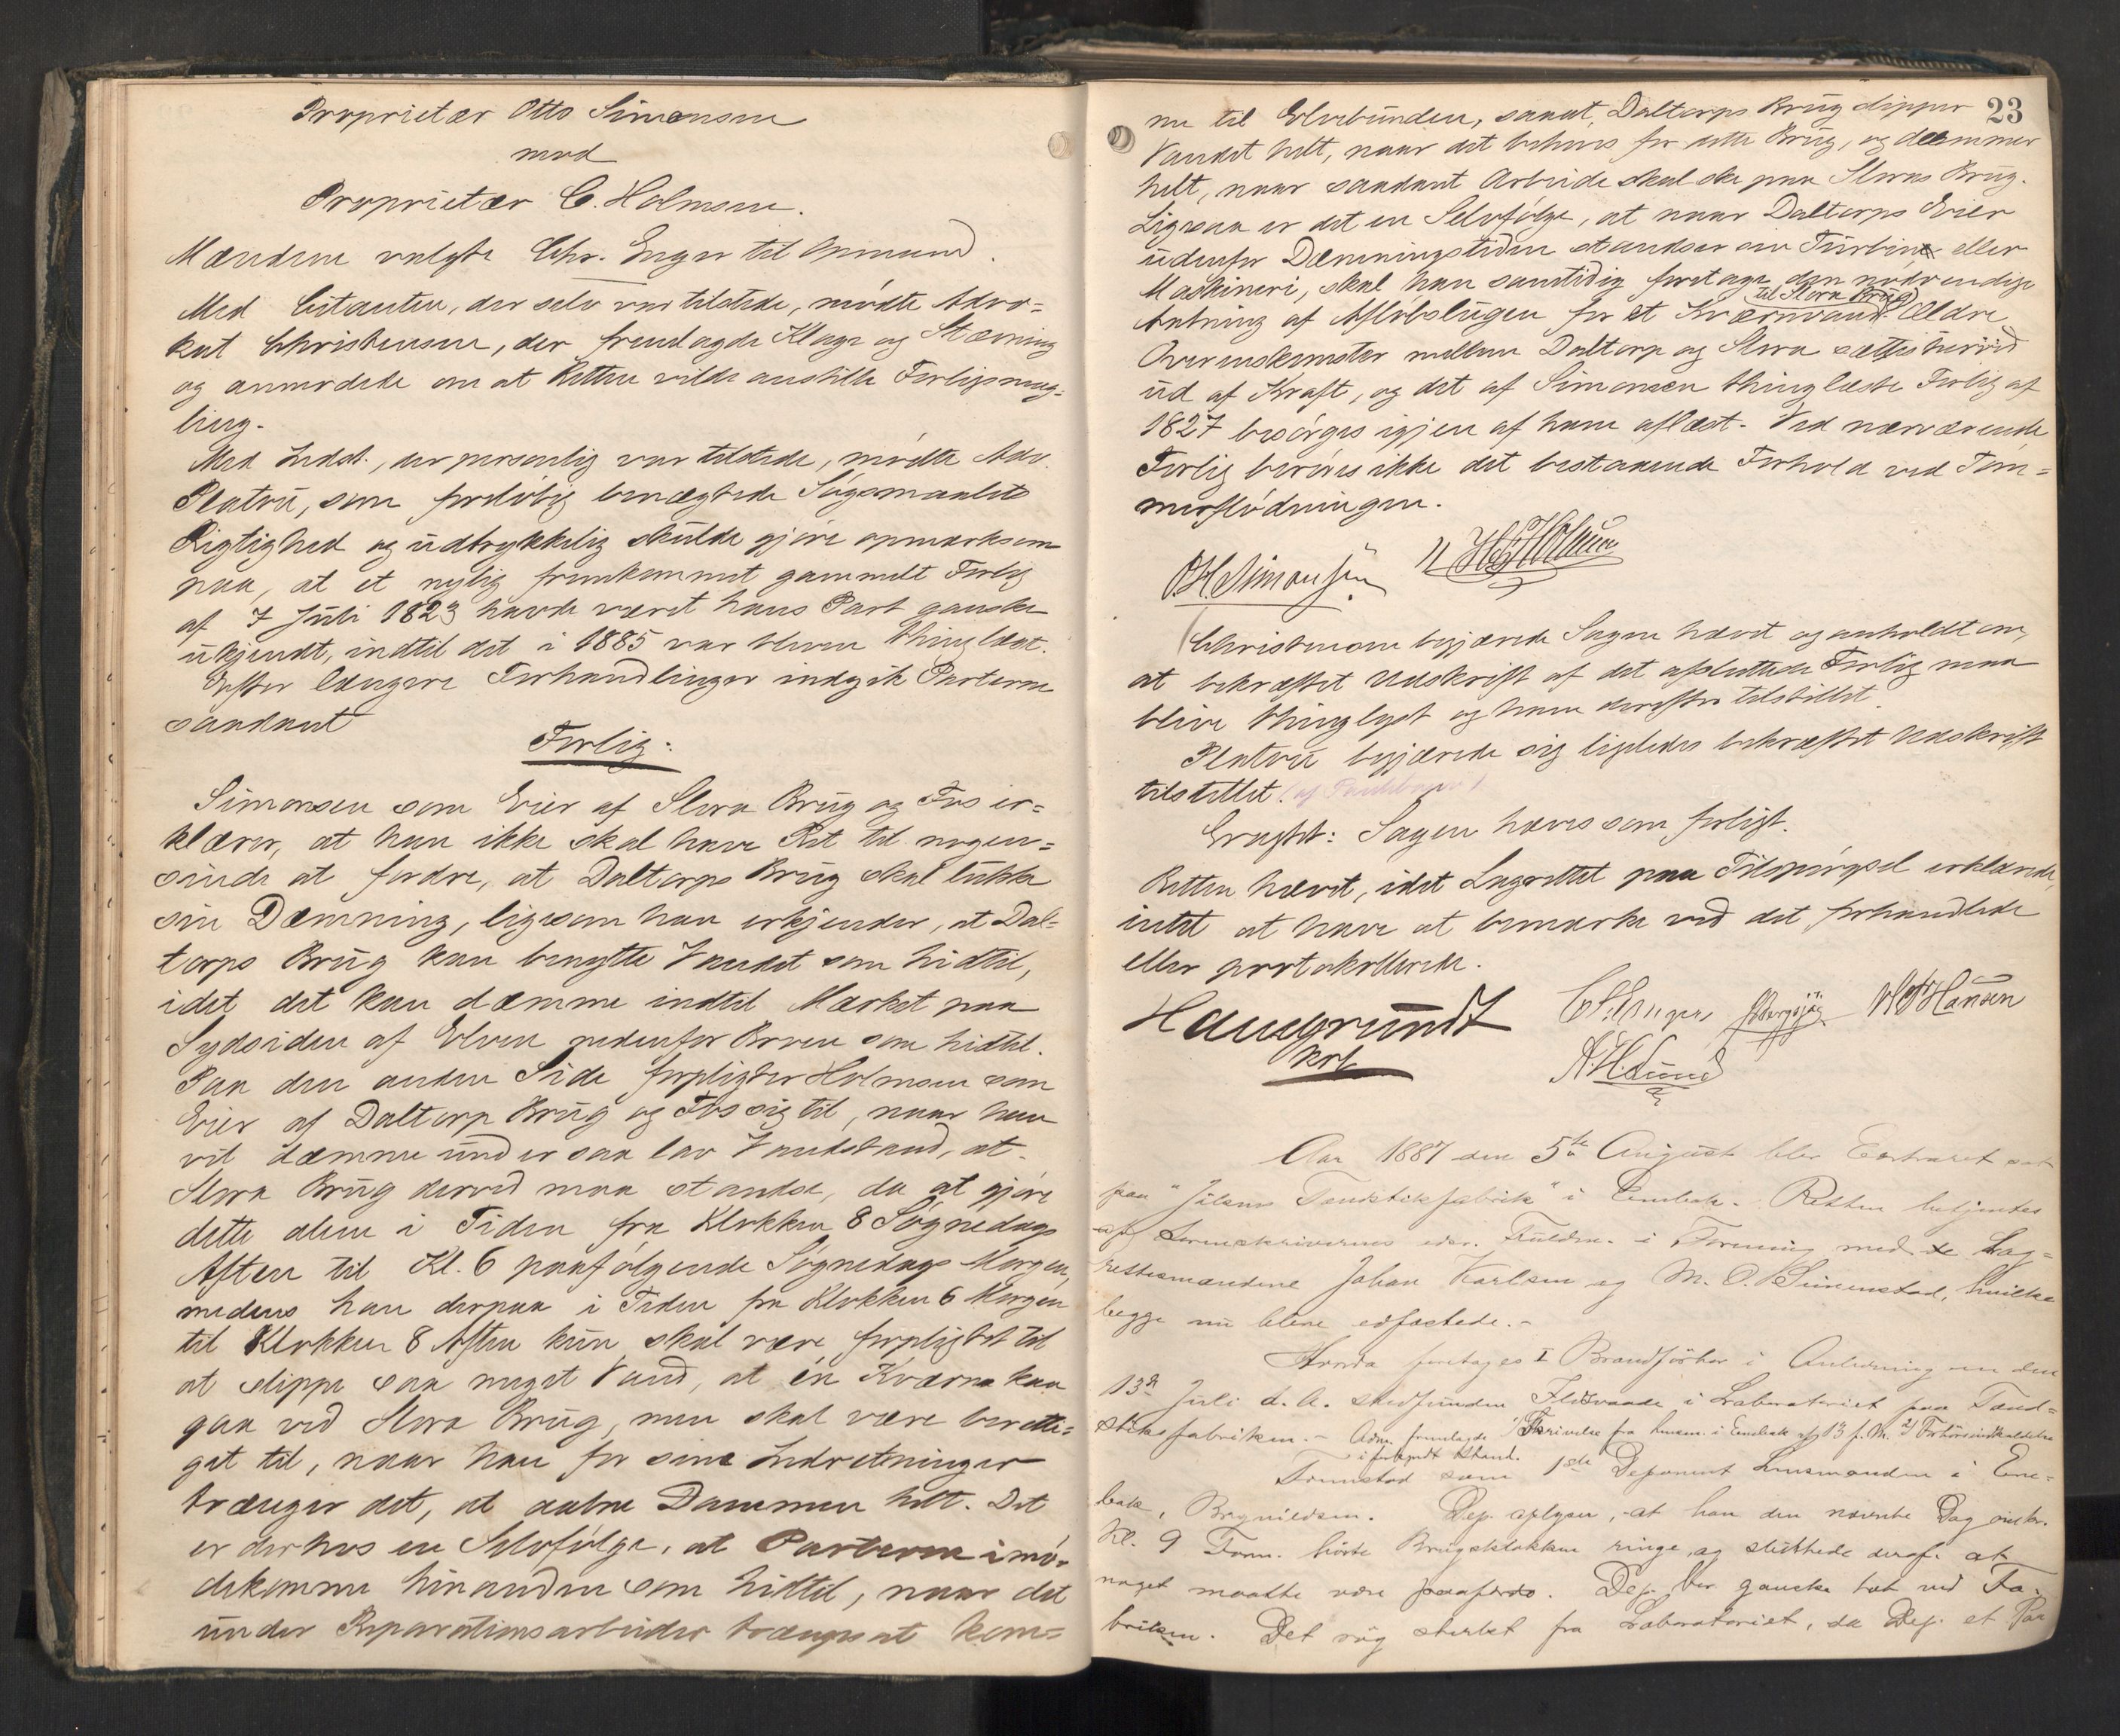 Proprietær Otto Simonsen
mod
Proprietær C. Holmsen.
Mændene valgte Chr. Enger til Opmand.
Med Citanten, der selv var tilstede, mødte Advo=
kat Christensen, der fremlagde Klage og Stævning
og anmodede om at Retten vilde anstille Forligsmæg=
ling.
Med Indst., der personlig var tilstede, mødte Adv.
Platou, som foreløbig benægtede Søgsmaalets
Rigtighed og udtrykkelig skulde gjøre opmærksom
paa, at et nylig fremkommet gammelt Forlig
af 7 Juli 1823 havde været hans Part ganske
ukjendt, indtil det i 1885 var bleven thinglæst.
Efter længere Forhandlinger indgik Parterne
saadant
Forlig:
Simonsen som Eier af Slora Brug og Fos er=
klærer, at han ikke skal have Ret til nogen=
sinde at fordre, at Daltorps Brug skal lukke
sin Dæmning, ligesom han erkjender, at Dal=
torps Brug kan benytte Vandet som hidtil,
idet det kan dæmme indtil Mærket paa
Sydsiden af Elven nedenfor Broen som hidtil.
Paa den anden Side forpligter Holmsen som
Eier af Daltorp Brug og Fos sig til, naar han
vil dæmme under saa lav Vandstand, at
Slora Brug derved maa standse, da at gjøre
dette alene i Tiden fra Klokken 8 Søgnedags
Aften til Kl. 6 paafølgende Søgnedags Morgen,
medens han derpaa i Tiden fra Klokken 6 Morgen
til Klokken 8 Aften kun skal være forpligtet til
at slippe saa meget Vand, at én Kværn kan
gaa ved Slora Brug, men skal være beretti=
get til, naar han for sine Indretninger
trænger det, at aabne Dammen helt. Det
er derhos en Selvfølge, at Parterne imø=
dekomme hinanden som hidtil, naar det
under Reparationsarbeider trænges at kom=
23
me til Elvebunden, saaat Daltorps Brug slipper
Vandet helt, naar det behøves for dette Brug, og dæmmer
helt, naar saadant Arbeide skal ske paa Sloras Brug.
Ligesaa er det en Selvfølge, at naar Daltorps Eier
udenfor Dæmningstiden standser sin Turbine eller
Maskineri, skal han samtidig foretage den nødvendige
til Slora Brug
Aabning af Afløbslugen for et Kværnvand. Ældre
Overenskomster mellem Daltorp og Slora sættes herved
ud af Kraft, og det af Simonsen thinglæste Forlig af
1827 besørges igjen af ham aflæst. Ved nærværende
Forlig berøres ikke det bestaaende Forhold ved Tøm=
merflødningen.
O.H. Simonsen
Christensen begjærede Sagen hævet og anholdt om,
at bekræftet Udskrift af det afsluttede Forlig maa
blive thinglyst og ham derefter tilstillet.
Platou begjærede sig ligeledes bekræftet Udskrift
tilstillet.
Eragtet: Sagen hæves som forligt.
Retten hævet, idet Lagrettet paa Tilspørgsel erklærede,
intet at have at bemærke ved det forhandlede
eller protokollerede.
Haugrundt
kst
A.H. Lund
Aar 1887 den 5te August blev Extraret sat
paa "Jølsens Tændstikfabrik" i Enebak. Retten betjentes
af Sorenskriverens edsv. Fuldm. i Forening med de Lag=
rettesmændene Johan Karlsen og M. O. Burenstad, hvilke
begge nu bleve edfæstede.-
Hvorda foretoges I Brandforhør i Anledning en den
13de Juli d. A. stedfunden Ildsvaade i Laboratoriet paa Tænd=
stiksfabriken.- Adm. fremlagde 1) Skrivelse fra Lensm. i Enebak af 13 f. M. 2) Forhørsindkaldelse
i forkyndt Stand.
Fremstod som 1ste Deponent Lensmanden i Ene=
bak, Brynildsen. Dep. oplyser, at han den nævnte Dag omkr.
Kl. 9 Form. hørte Brugsklokken ringe, og sluttede deraf at
noget maatte være paafærde. Dep. bor ganske tæt ved Fa=
briken. Det røg sterkt fra Laboratoriet, da Dep. et Par